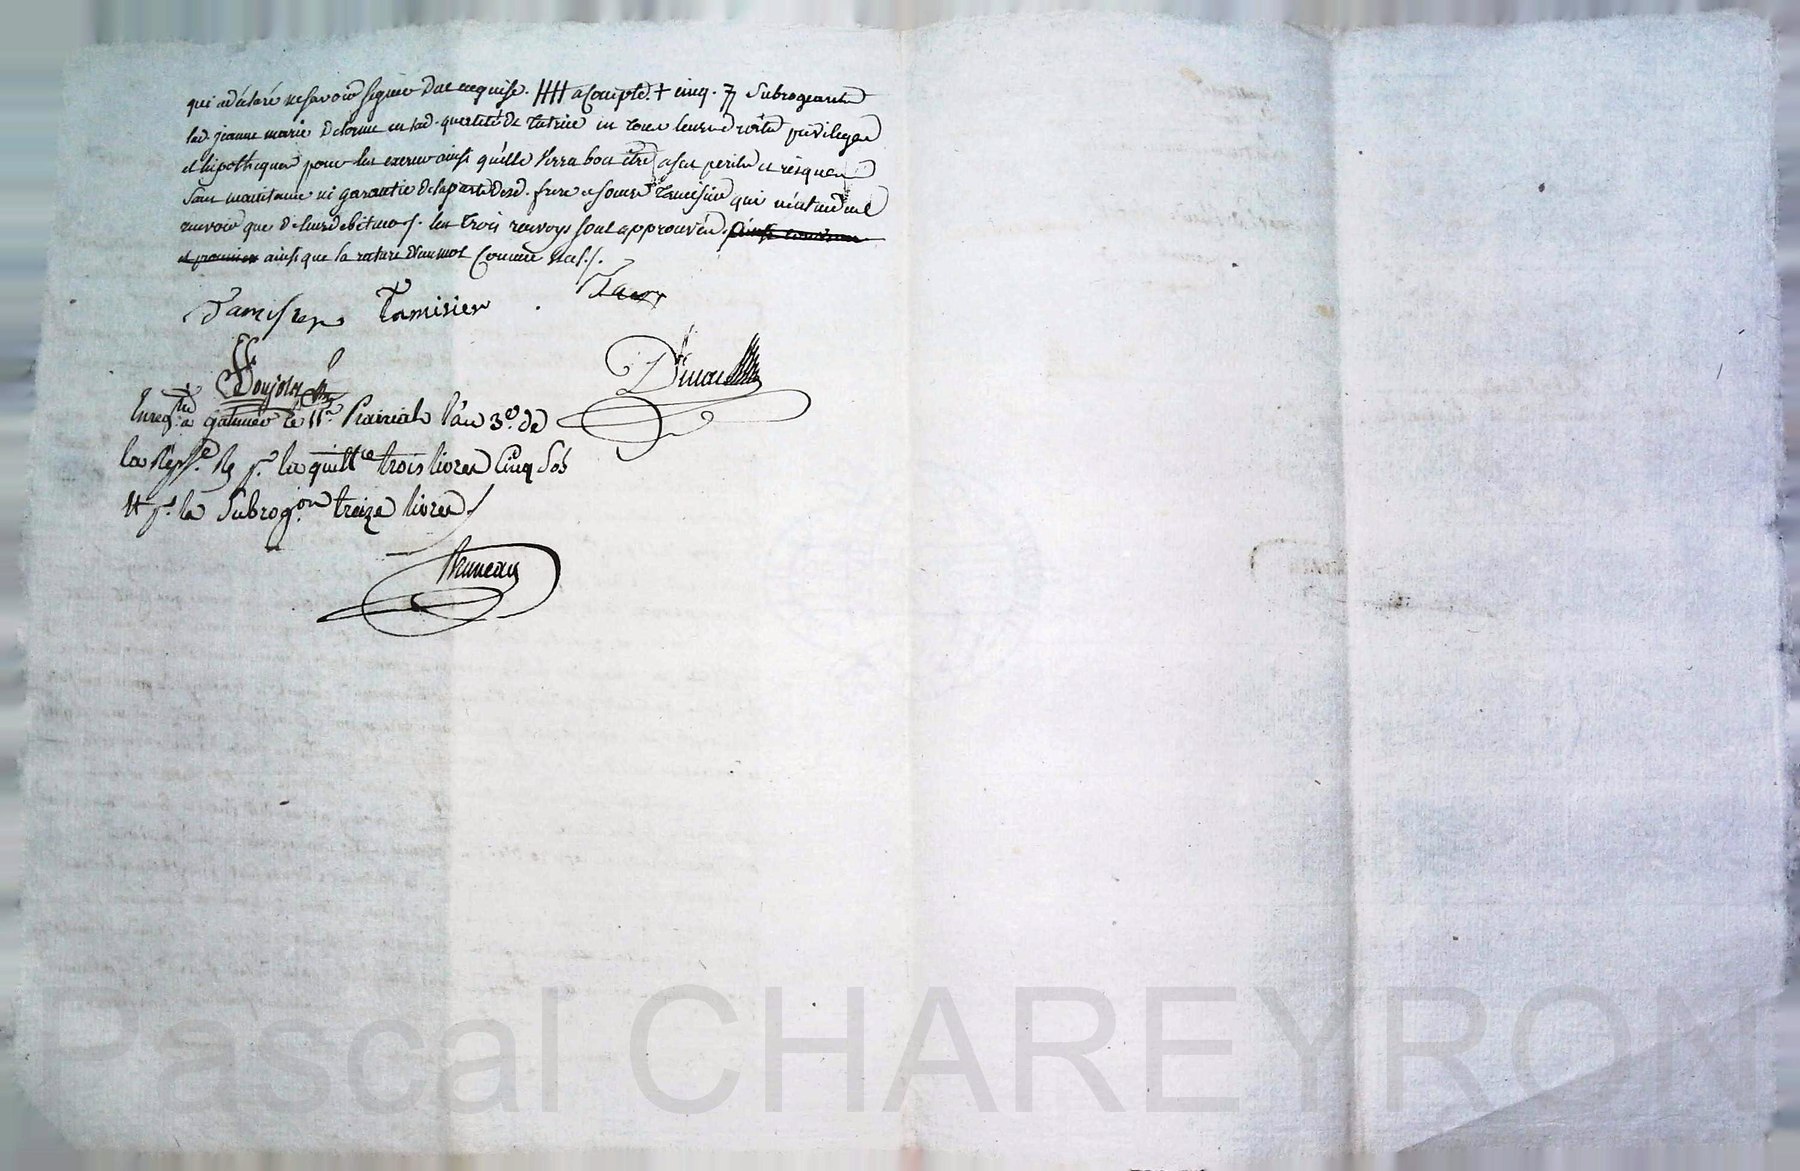 qui a déclaré ne savoir signer de ce enquise. HH a Compte. + cinq. 77 Subrogeantz
lad jeanne marie Delorme en sad. qualité de Tutrice en tous leurs droits privileges
et hipotheques pour les exercer ainsi qu'elle verra bon être a ses perils et risques
Sans maintenue ni garantie de la part desd. frere et soeur Tamisier qui n'entendent
que de leurs debituos /. les trois renvoys sont approuvés.
ainsi que la rature d'un mot Comme nul ./.
Tamisier Tamisier
Doujols
Dinou
Enreg.tré a le 11.e Prairial l'an 3.e de
la Rép.e R p.r la quitt.ce trois livres Cinq Sols
et p.r la Subrog.on treize livres /
Bruneau
Pascal CHAREYRON